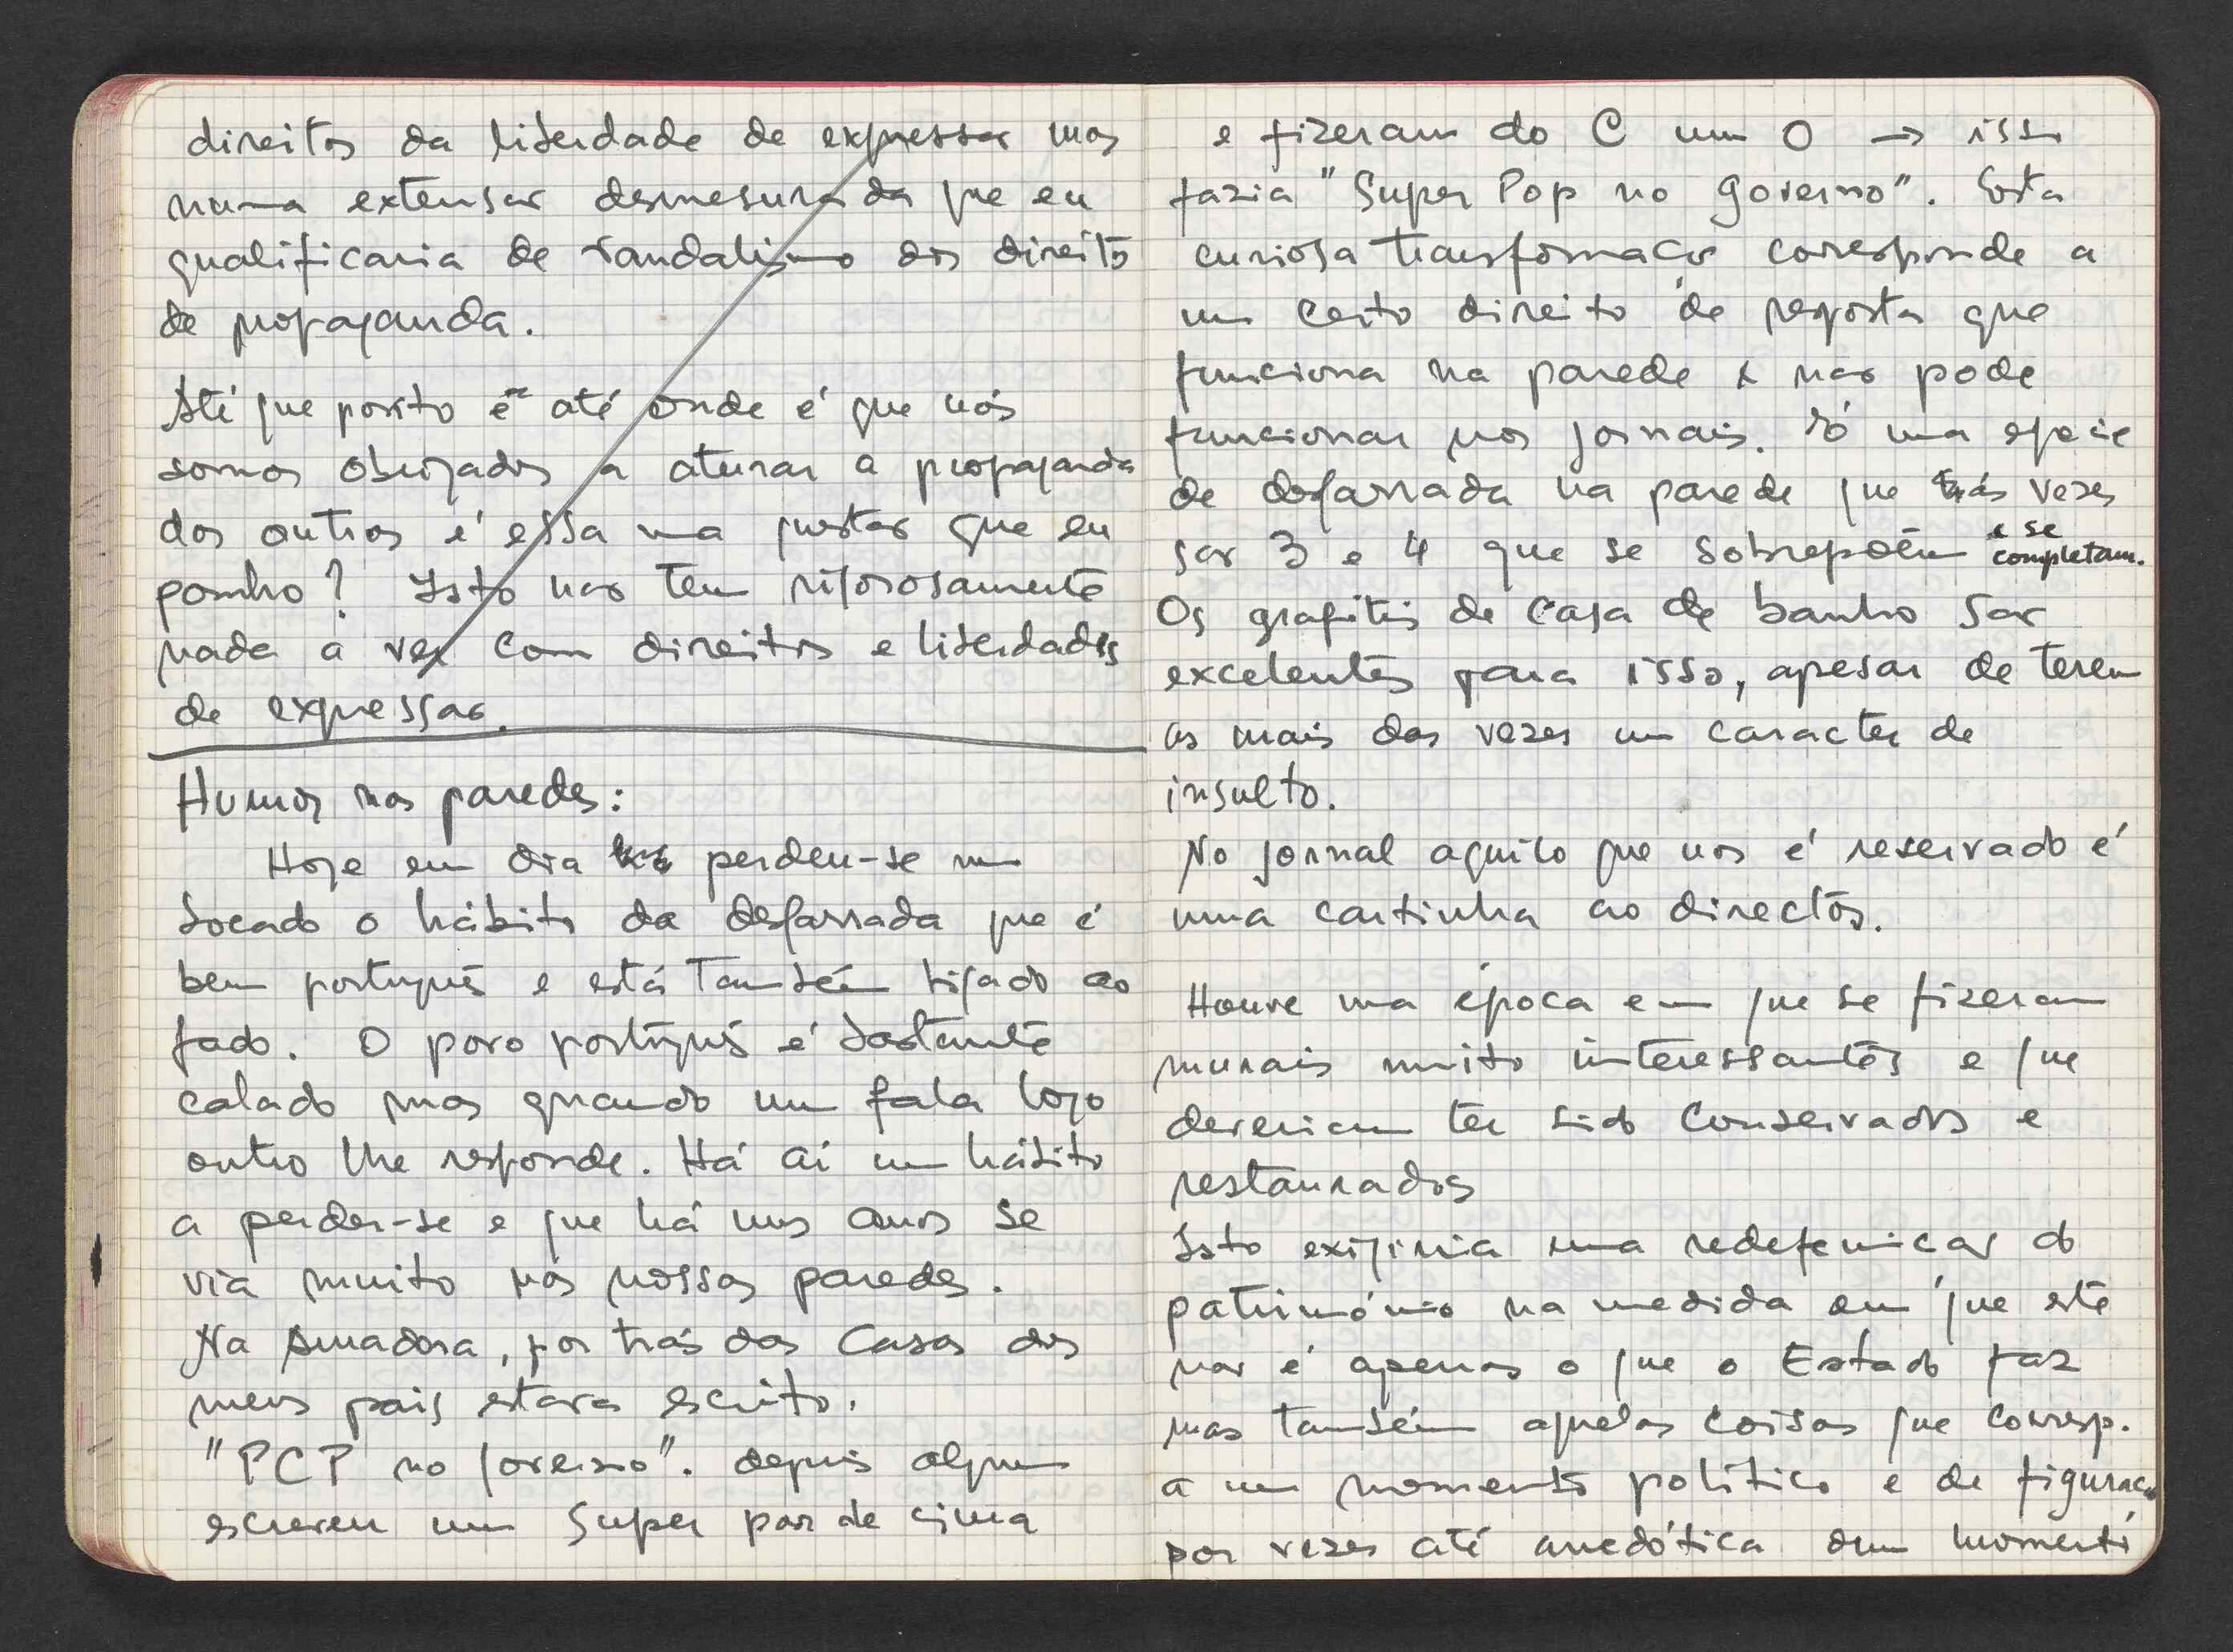 direitos da liberdade de expressão mas
numa extensão desmesurada que eu
qualificaria de vandalismo dos direitos
de propaganda.
Até que ponto é até onde é que nós
somos obrigados a aturar a propaganda
dos outros é essa uma questão que eu
ponho? Isto não tem rigorosamente
nada a ver com direitos e liberdades
de expressão.
Humor nas paredes:
Hoje em dia perdeu-se um
bocado o hábito da desgarrada que é
bem português e está também ligado ao
fado. O povo português é bastante
calado mas quando um fala logo
outro lhe responde. Há aí um hábito
a perder-se e que há uns anos se
via muito nas nossas paredes.
Na Amadora, por trás das Casas dos
meus pais estava escrito.
"PCP no governo". depois alguem
escreveu um Super por de cima
e fizeram do C um O → isso
fazia "Super Pop no governo". Esta
curiosa transformação corresponde a
um certo direito de resposta que
funciona na parede e não pode
funcionar nos jornais. Só uma espécie
de desgarrada na parede que às vezes
são 3 e 4 que se sobrepõem e se
completam.
Os grafitis de casa de banho são
excelentes para isso, apesar de terem
as mais das vezes um caracter de
insulto.
No jornal aquilo que nos é reservado é
uma cartinha ao director.
Houve uma época em que se fizeram
murais muito interessantes e que
deveriam ter sido conservados e
restaurados
Isto exigiria uma redefenição do
património na medida em que este
não é apenas o que o Estado faz
mas também aquelas coisas que corresp.
a um momento político e de figuração
por vezes até anedótica dum momento